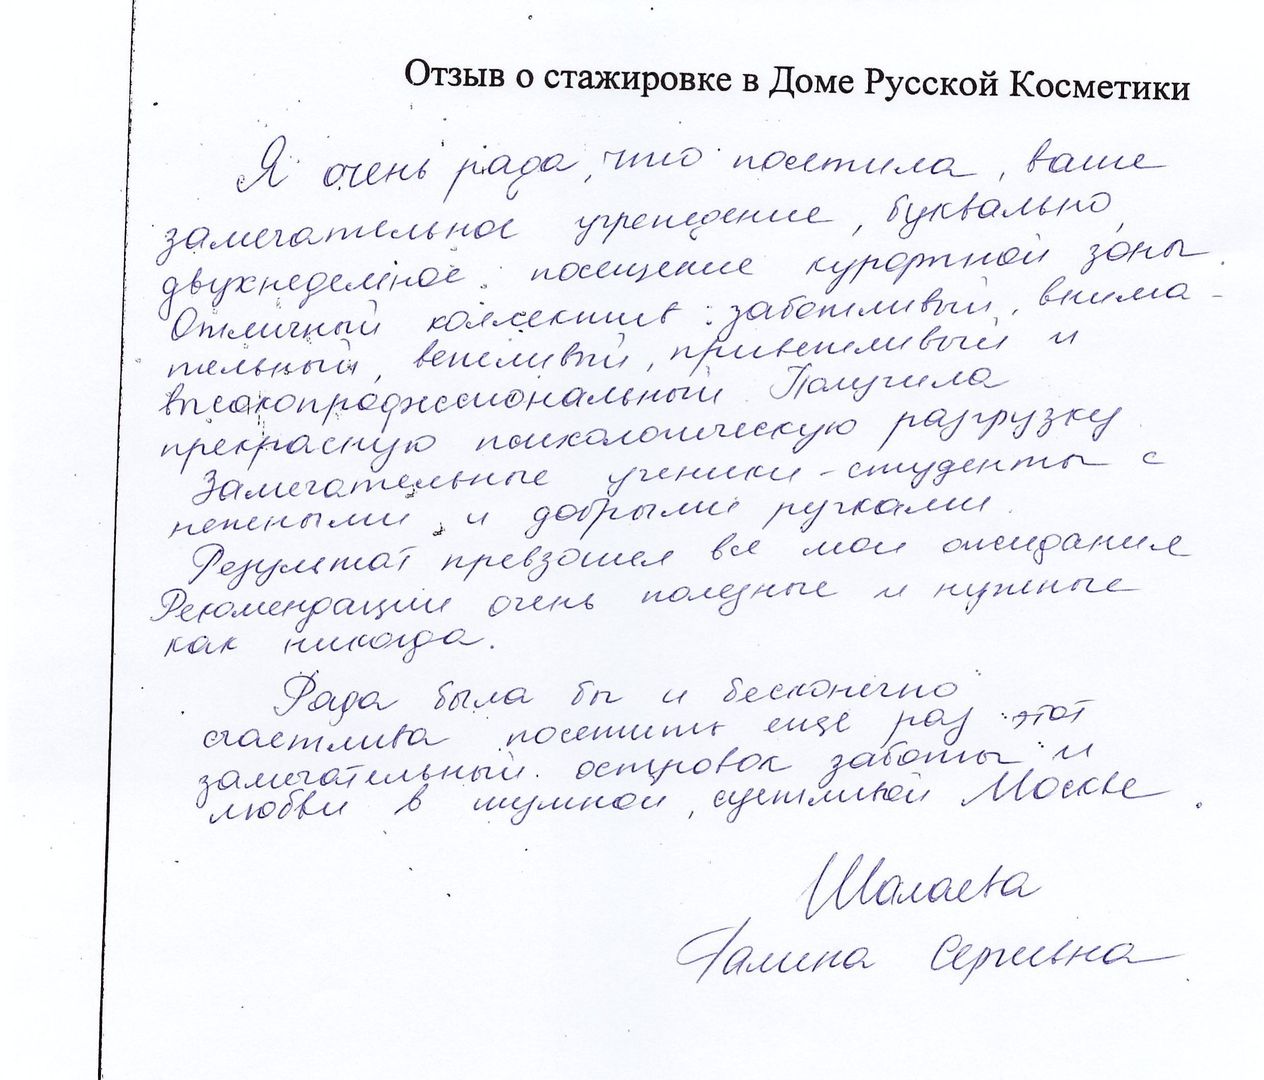 Отзыв о стажировке в Доме Русской Косметики
Я очень рада, что посетила, ваше
замечательное учреждение, буквально
двухнедельное посещение курортной зоны.
Отличный коллектив: заботливый, внима-
тельный, вежливый, приветливый и
высокопрофессиональный. Получила
прекрасную психологическую разгрузку.
Замечательные ученики-студенты с
нежными и добрыми ручками.
Результат превзошел все мои ожидания
Рекомендации очень полезные и нужные
как никогда.
Рада была бы и бесконечно
счастлива посетить еще раз этот
замечательный островок заботы и
любви в шумной, суетливой Москве.
Шалаева
Галина Сергеевна